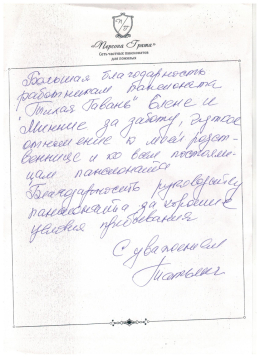 «Персона Грата»
Сеть частных пансионатов
для пожилых
Большая благодарность
работникам пансионата
"Тихая Гавань" Елене и
за заботу, чуткое
отношение к моей родст-
веннице и ко всем постояли-
цам пансионата
Благодарность руководству
пансионата за хорошие
условия пребывания
С уважением
Татьяна